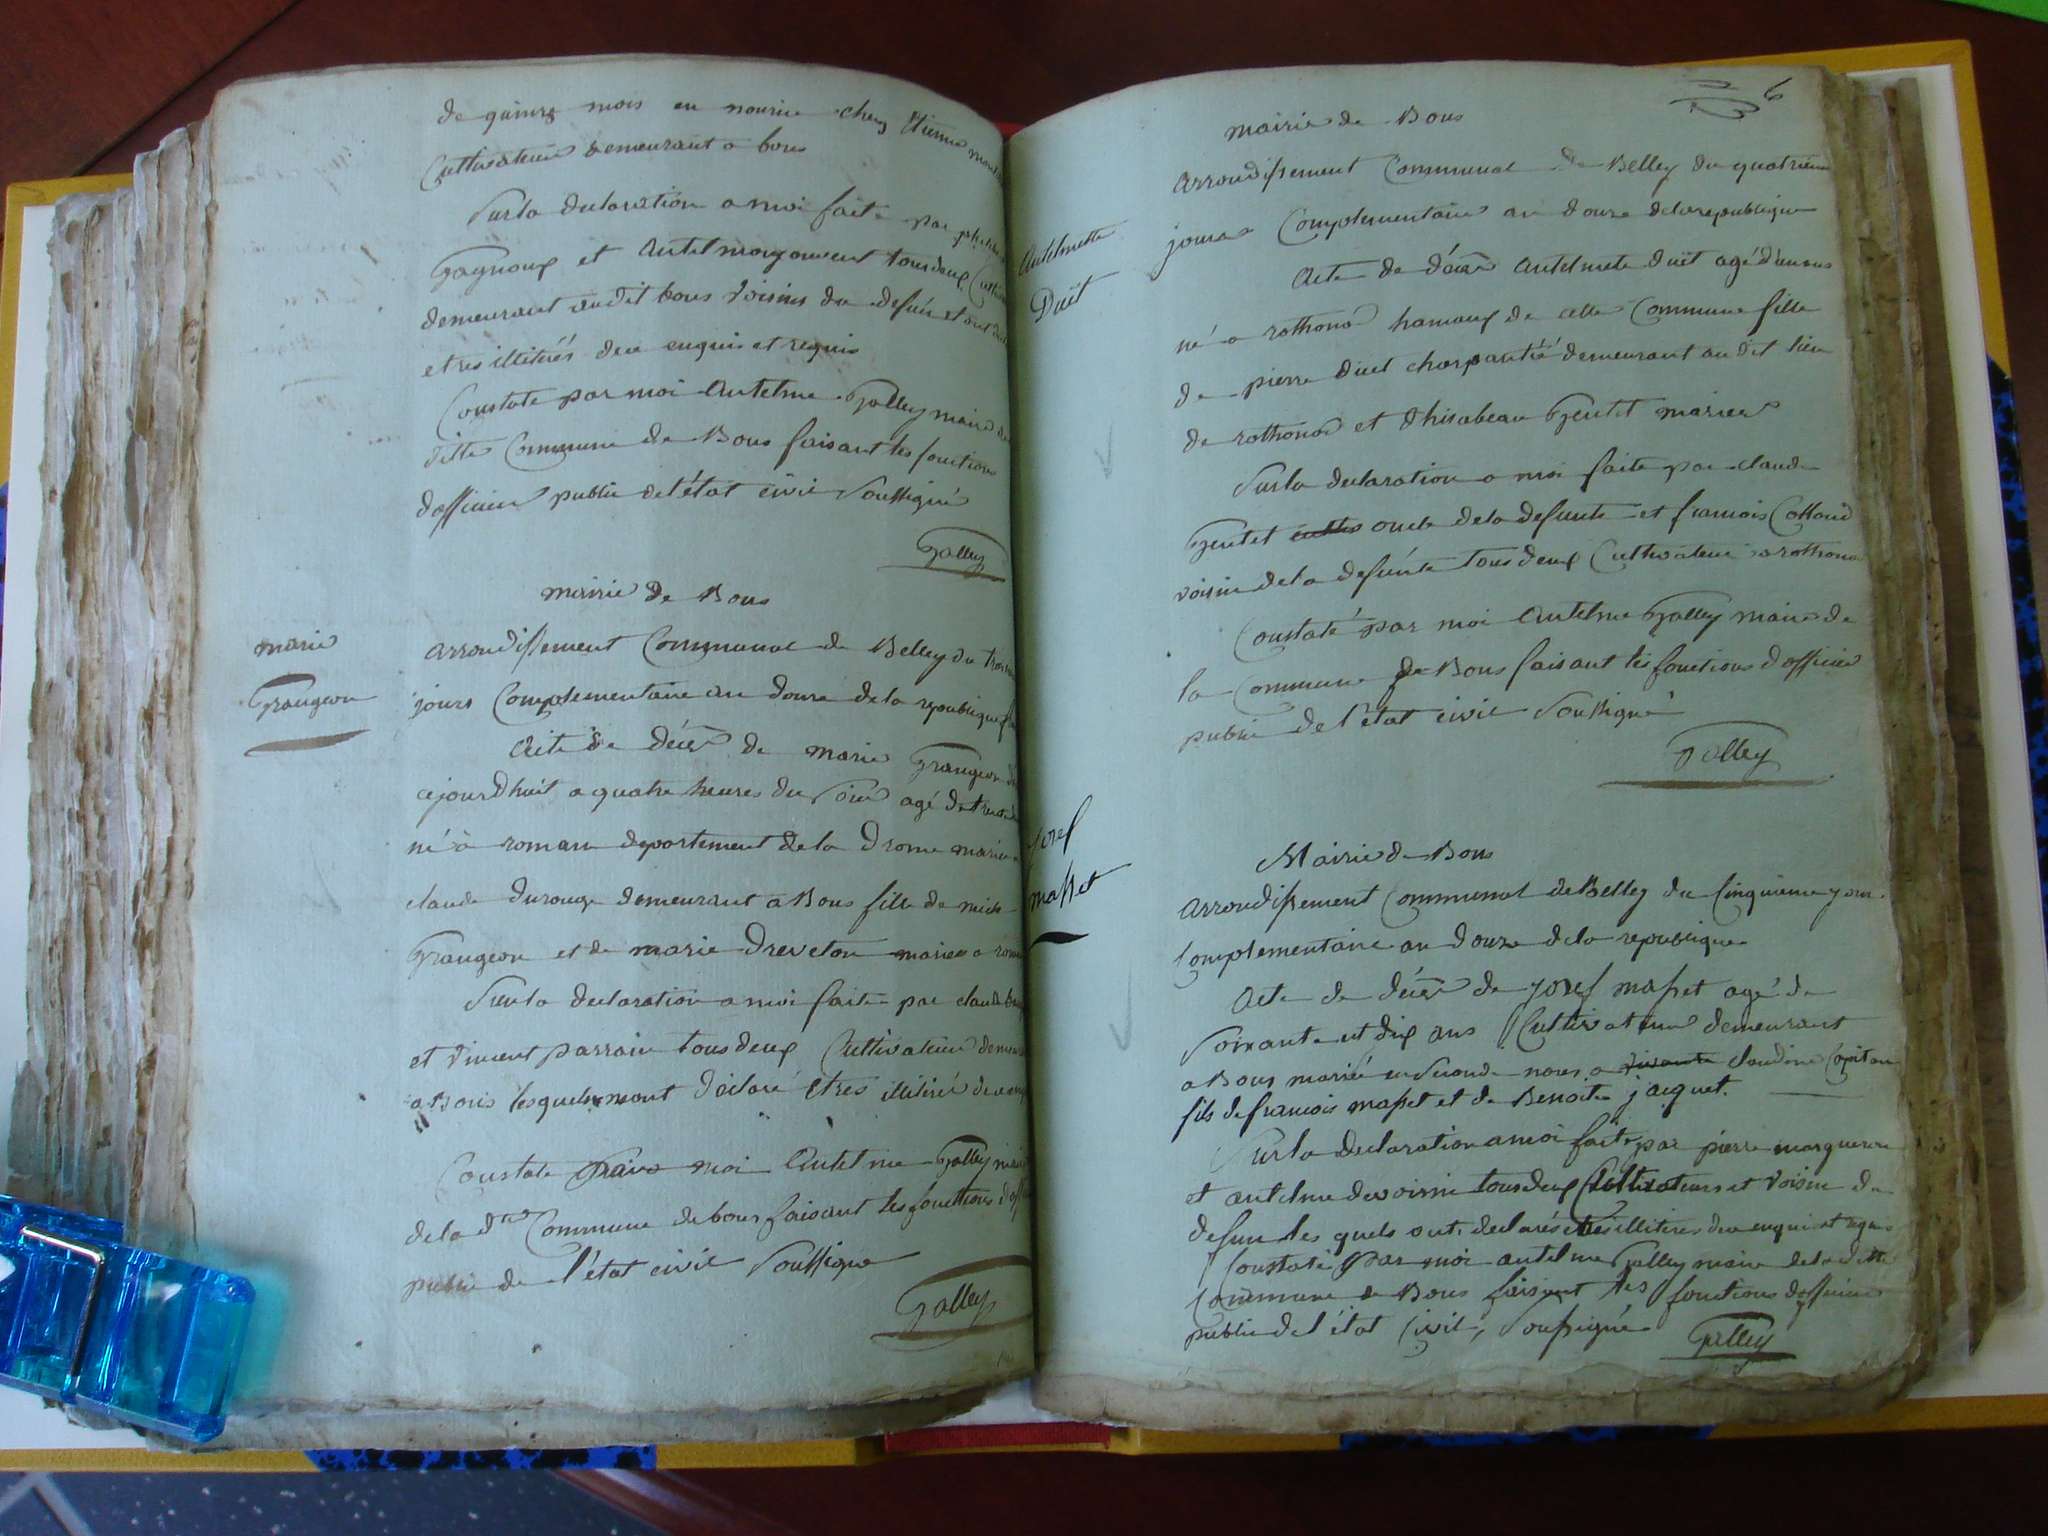 de quinze mois en nourice chez Etienne
Cultivateur demeurant a bons
Sur la declaration a moi faite par
Gagnoux et Antelme demeurant tous deux
demeurant audit bons voisins du defunt
etres illitirés de ce enquis et requis
Constate par moi Antelme Galley maire de
ditte Commune de Bons faisant les fonctions
d'officier public de l'état civil soussigné
Galley
mairie de Bons
marie
Grangeon
arrondissement Communal de Belley du
jours Complementaire an douze de la republique
Acte de décès de marie Grangeon
cejourdhuit a quatre heures du soir agé de
né à roman departement de la Drome mariée
claude durouge demeurant a Bons fille de
Grangeon et de marie Dreveton mariés a
Sur la declaration a moi faite par claude
et vincent parrain tous deux Cultivateur
a Bons lesquels mont déclaré etres illitiré de ce
Constate par moi Antelme Galley
de la dte Commune de bons faisant les fonctions
public de l'état civil soussigné
Galley
6
mairie de Bons
arrondissement Communal de Belley du quatrieme
jours Complementaire an douze de la republique
Antelmette
Duët
Acte de décès Antelmete duët agé d'un ans
né a rothonod hamaux de cette Commune fille
de pierre duet charpantié demeurant au dit lieu
de rothonod et d'hisabeau Gentet mariés
Sur la declaration a moi faite par claude
Gentet oncle de la defunte et francois Colloud
voisin de la defunte tous deux Cultivateur a rothonod
Constaté par moi Antelme Galley maire de
la Commune de Bons faisant les fonctions d'officier
public de l'état civil soussigné
Galley
josef
masset
Mairie de Bons
arrondissement Communal de Belley du Cinquieme jour
Complementaire an douze de la republique
Acte de décès de josef masset agé de
soixante et dix ans Cultivateur demeurant
a Bons marié en seconde noces a vivante claudine Capitan
fils de francois masset et de Benoite jacquet.
Sur la declaration a moi faite par pierre
et antelme devoisin tous deux Cultivateurs et voisin du
defun les quels ont declarés etres illitires de ce enqui et
Constaté par moi antelme Galley maire de la ditte
Commune de Bons faisant les fonctions d'officier
public de l'état Civil, soussigné
Galley